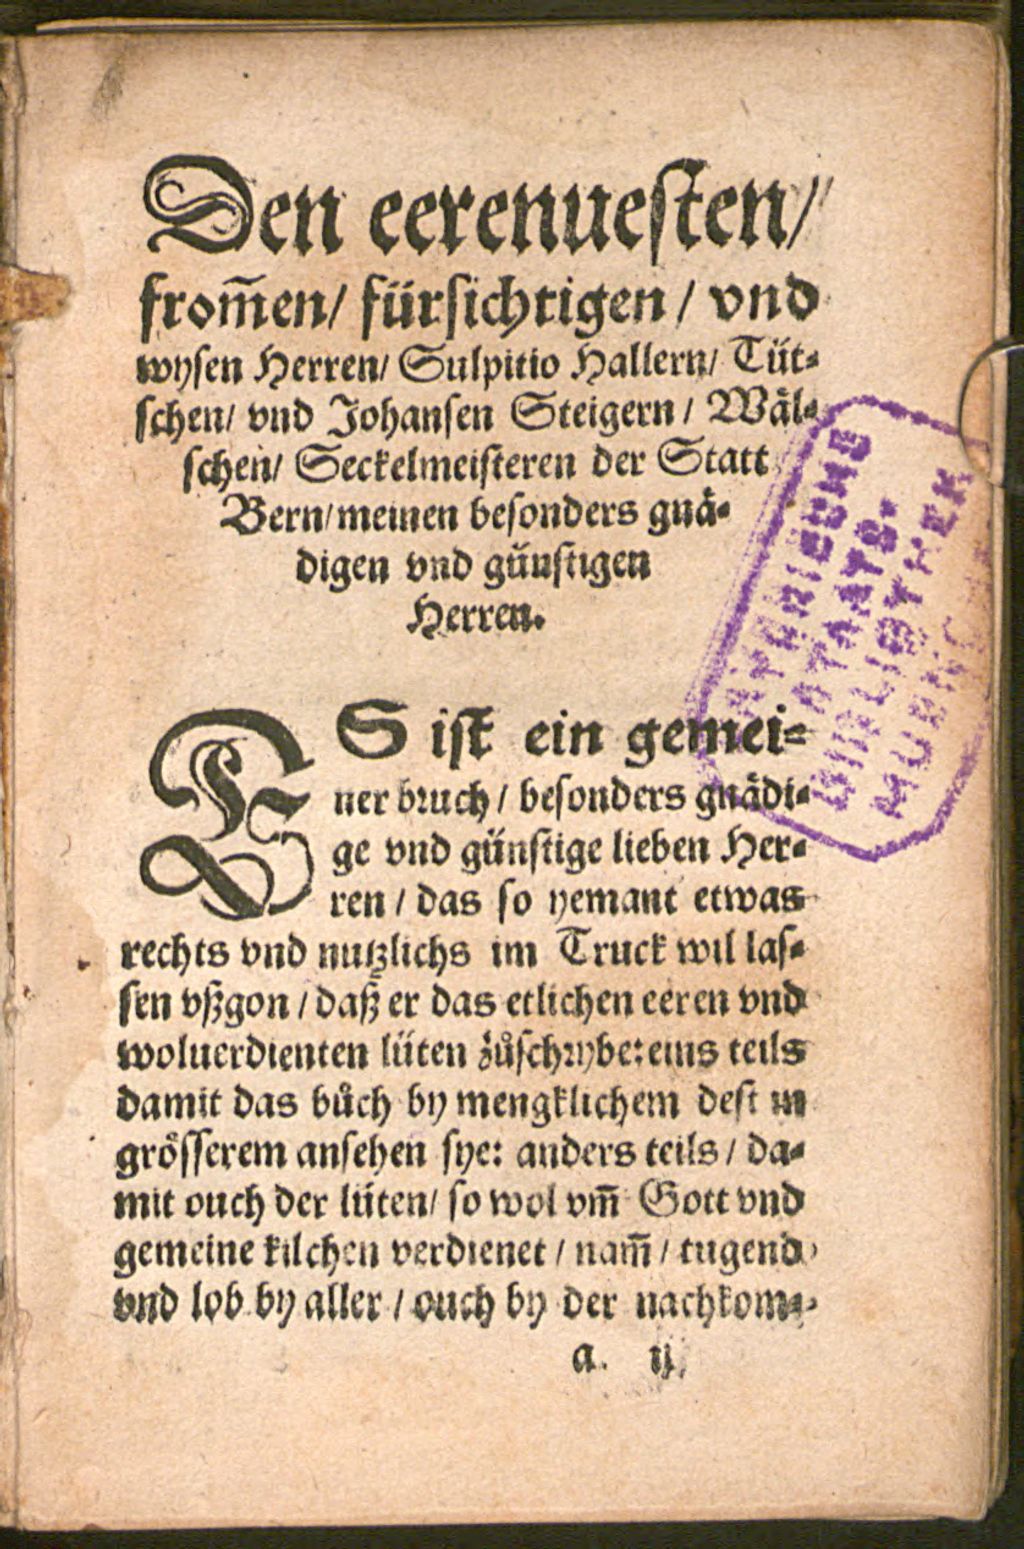 Den eerenuesten/
from̄en/ fürsichtigen / vnd
wysen Herren/ Sulpitio Hallern/ Tüt⸗
schen/ vnd Johansen Steigern / Wäl⸗
schen/ Seckelmeisteren der Statt
Bern/ meinen besonders gnä⸗
digen vnd günstigen
Herren.
ES ist ein gemei⸗
ner bruch / besonders gnädi⸗
ge vnd günstige lieben Her⸗
ren / das so yemant etwas
rechts vnd nutzlichs im Truck wil las⸗
sen vßgon / daß er das etlichen eeren vnd
woluerdienten lüten zůschrybe: eins teils
damit das bůch by mengklichem dest in
grösserem ansehen sye: anders teils / da⸗
mit ouch der lüten/ so wol vm̄ Gott vnd
gemeine kilchen verdienet / nam̄ / tugend
vnd lob by aller / ouch by der nachkom⸗
a. ij.
BAYERISCHE
STAATS-
BIBLIOTHEK
MUENCHEN